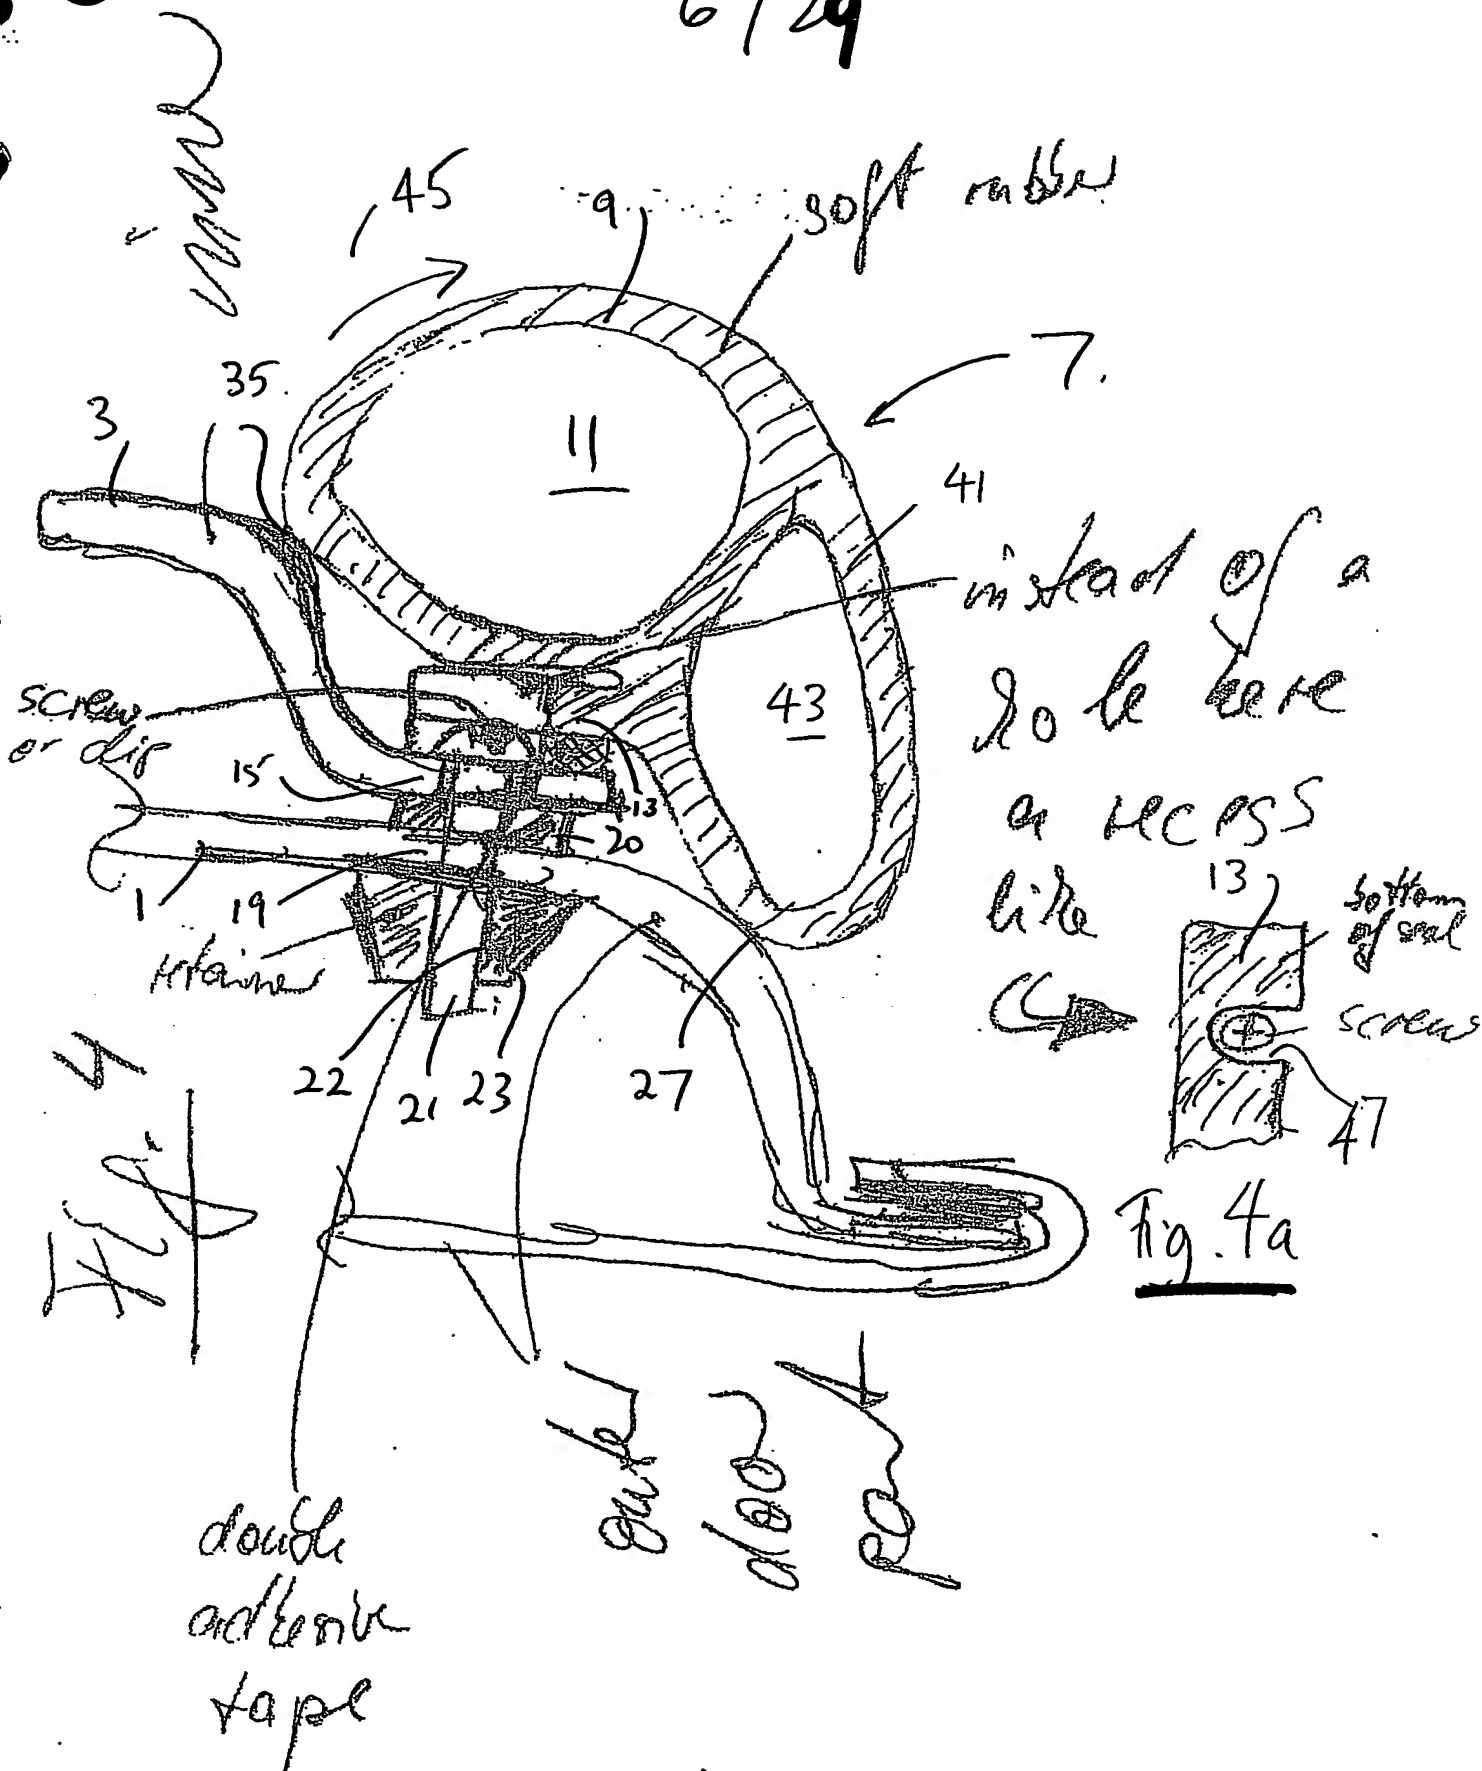 6/29
45
9
soft rubber
35
3
7.
11
41
instead of a
hole have
a recess
like
43
screw
or clip
15
13
20
1
19
retainer
22
21
23
27
13
bottom
of seal
screw
47
Fig. 4a
Fig. 4
double
adhesive
tape
door